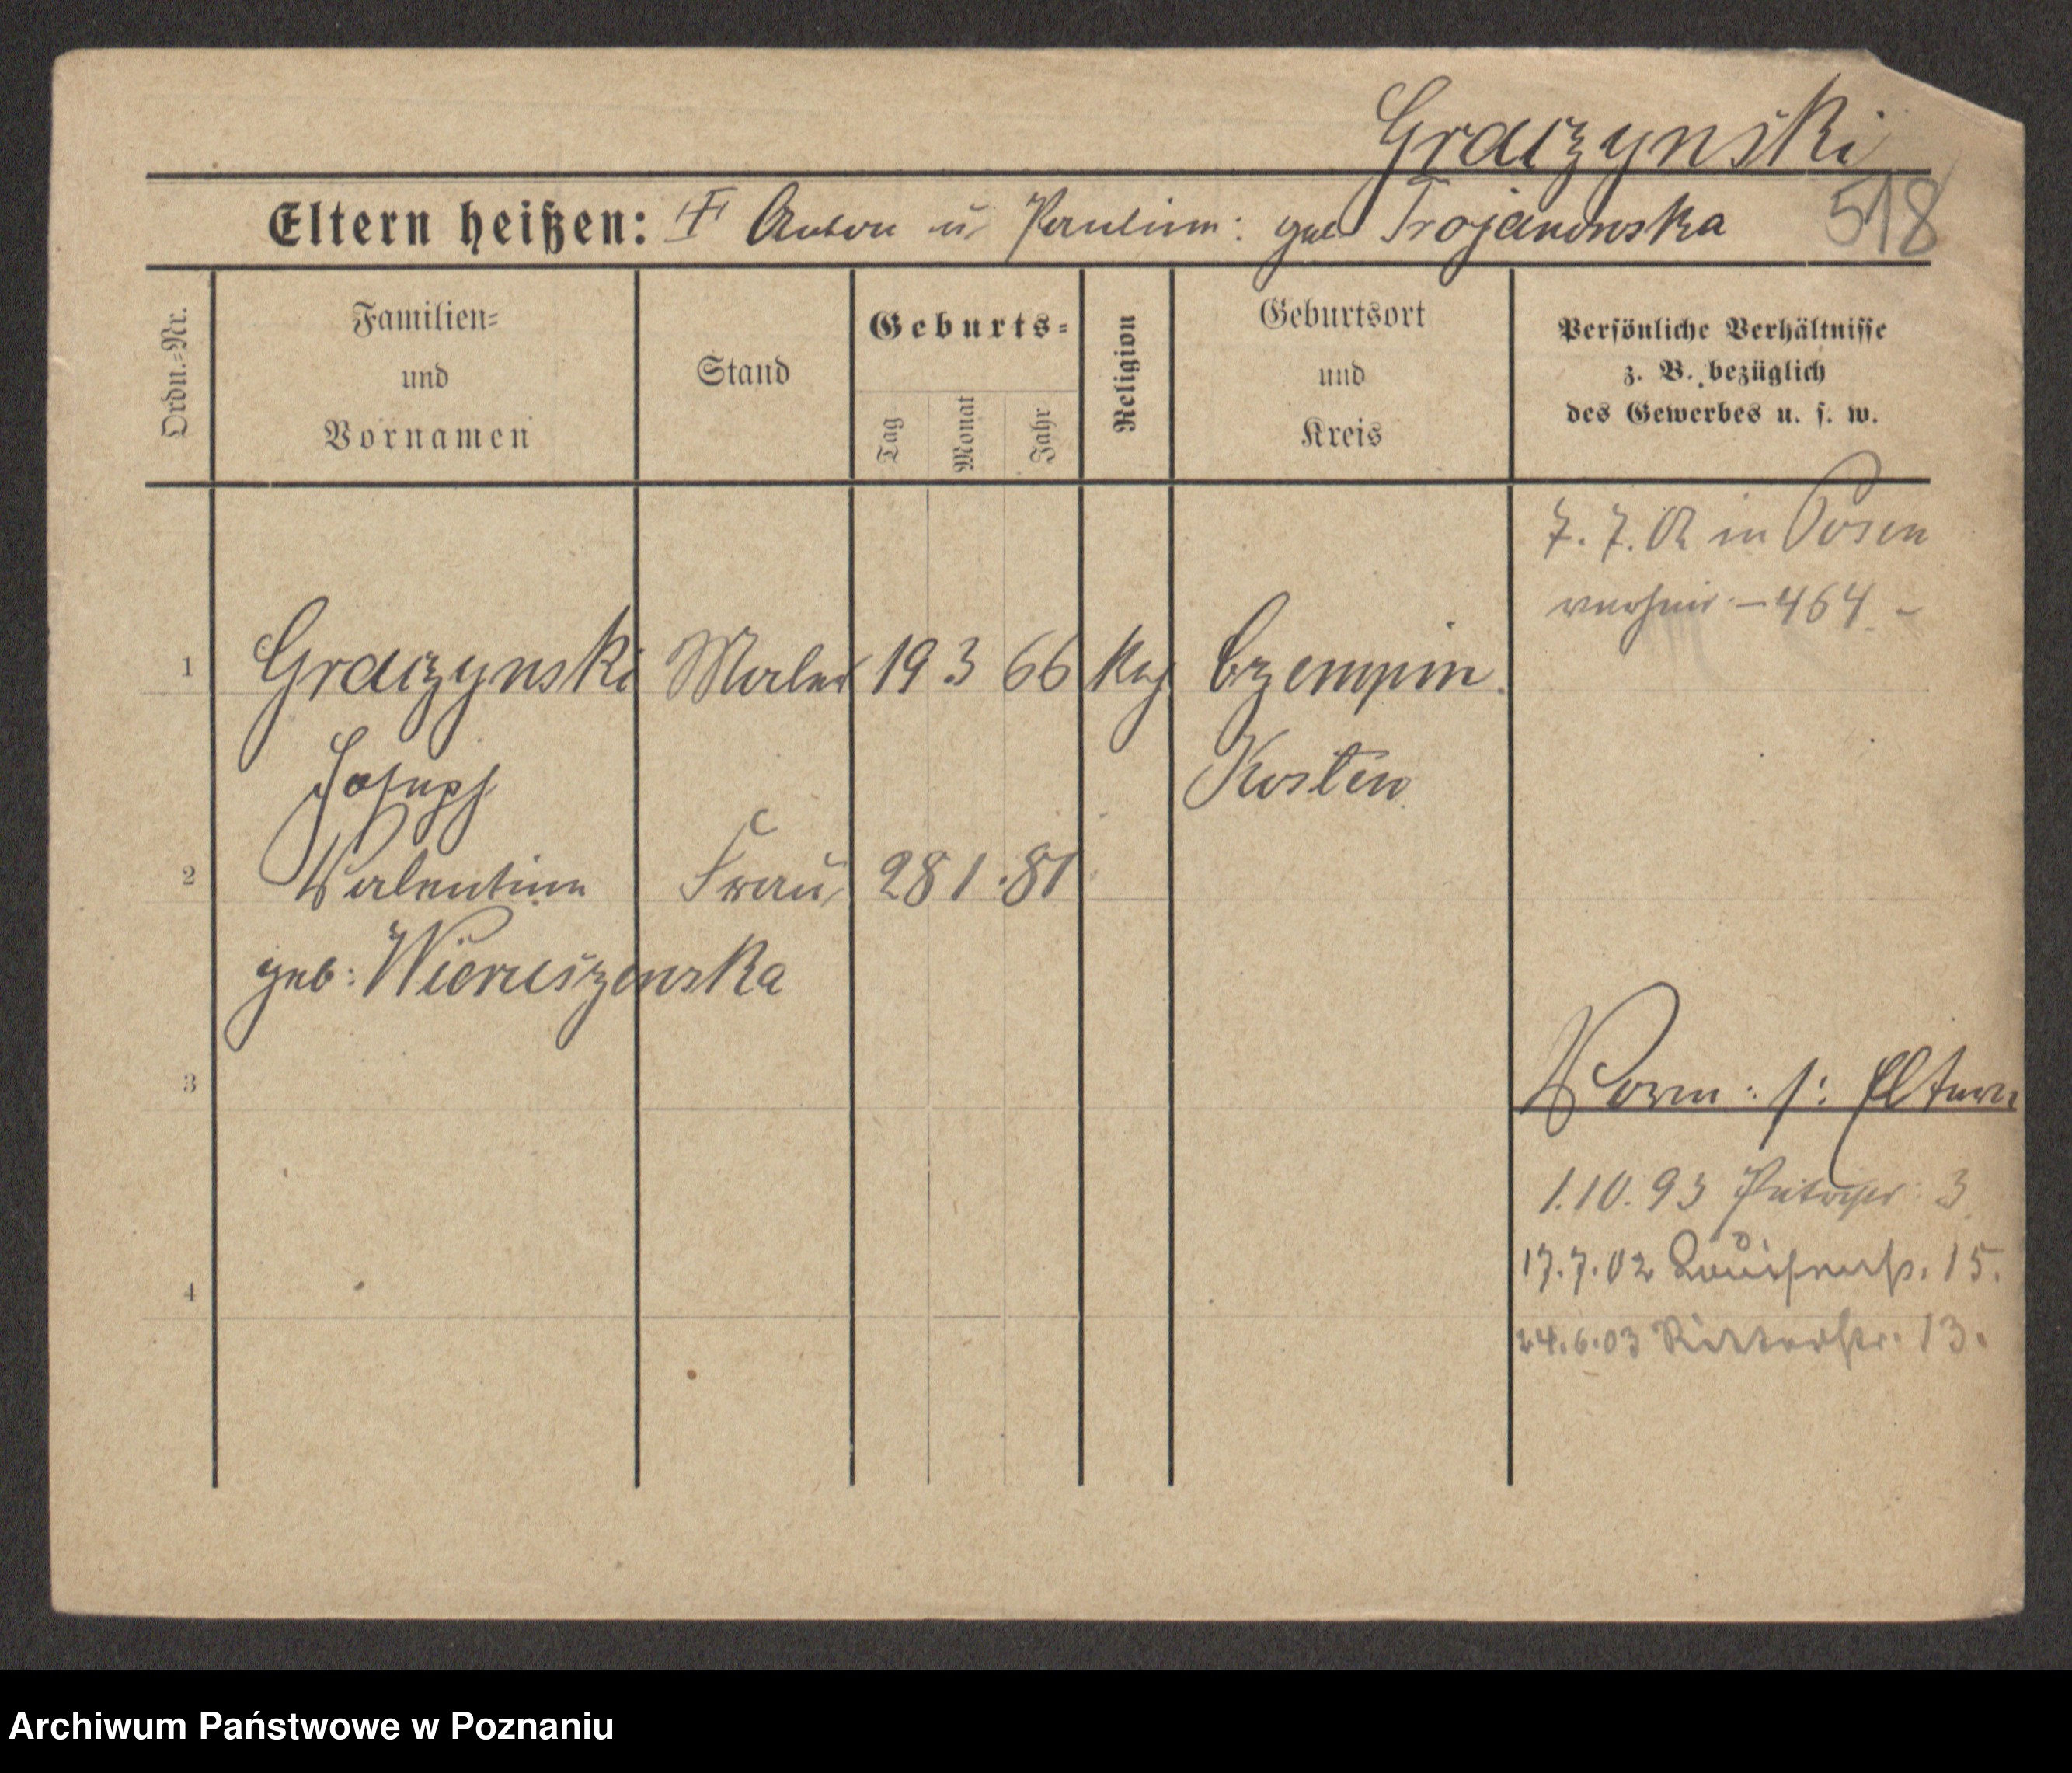 Graczynski
518
Eltern heißen: Anton u Paulin: geb Trojanowska
Ordn.-Nr.
Familien-
und
Vornamen
Stand
Geburts-
Tag
Monat
Jahr
Religion
Geburtsort
und
Kreis
Persönliche Verhältnisse
z. B. bezüglich
des Gewerbes u. s. w.
7. 7. 02 in Posen
verheir. – 464 –
1 Graczynski Maler 19 3 66 Czempin
Joseph Kosten
2 Valentine Frau 28 1. 81
geb: Wieruszewska
3 Vorm: s: Eltern
1.10.93 3
17.7.02 Louisenstr. 15.
4
24.6.03 Ritterstr. 13.
Archiwum Państwowe w Poznaniu